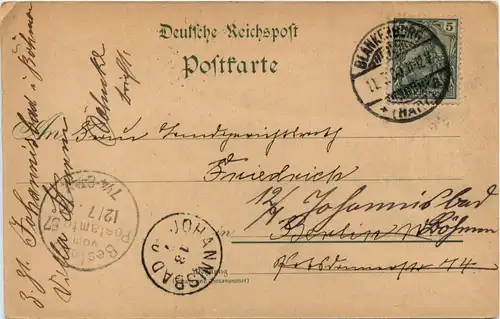 Deutsche Reichspost
Postkarte
5
BLANKENBURG
(HARZ)
An Frau Landgerichtsrath
Friedrich
12/7 Johannisbad
in Berlin Böhmen
Potsdamerstr 44.
Wohnung
JOHANNISBAD
13
Bestellt
vom
Postamte
12/7
3. Zt. Johannisbad i Böhmen
Villa